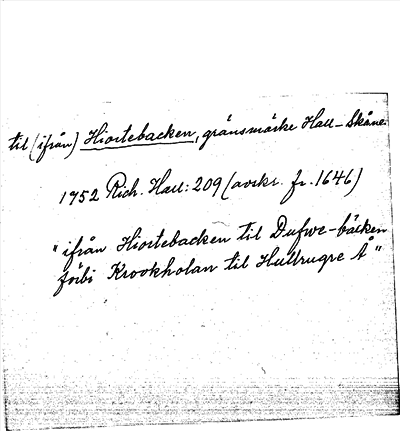 til (ifrån) Hiortebacken, gränsmärke Hall-Skåne.
1752 Rich. Hall: 209 (avskr. fr. 1646)
"ifrån Hiortebacken til Dufwe-bäcken
förbi Krookholan til Hultrugre Å"